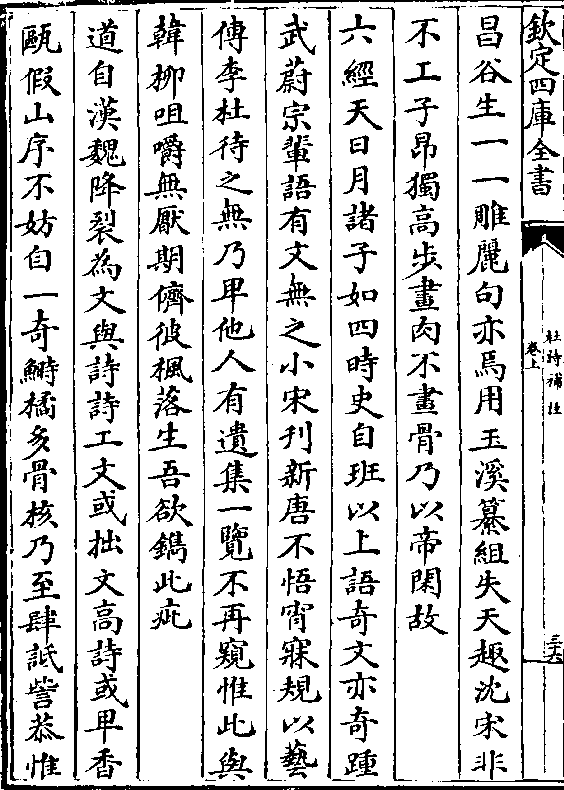 欽定四庫全書
杜詩補註
卷上
三六
昌谷生一一雕麗句亦焉用玉溪纂組失天趣沈宋非
不工子昂獨高步畫肉不畫骨乃以帝閑故
六經天日月諸子如四時史自班以上語奇文亦奇踵
武蔚宗輩語有文無之小宋刊新唐不悟宵寐規以藝
傳李杜待之無乃卑他人有遺集一覽不再窺惟此與
韓栁咀嚼無厭期儕彼楓落生吾欲鐫此疵
道自漢魏降裂為文與詩詩工文或拙文高詩或卑香
甌假山序不妨自一奇鰣橘多骨核乃至肆詆訾恭惟